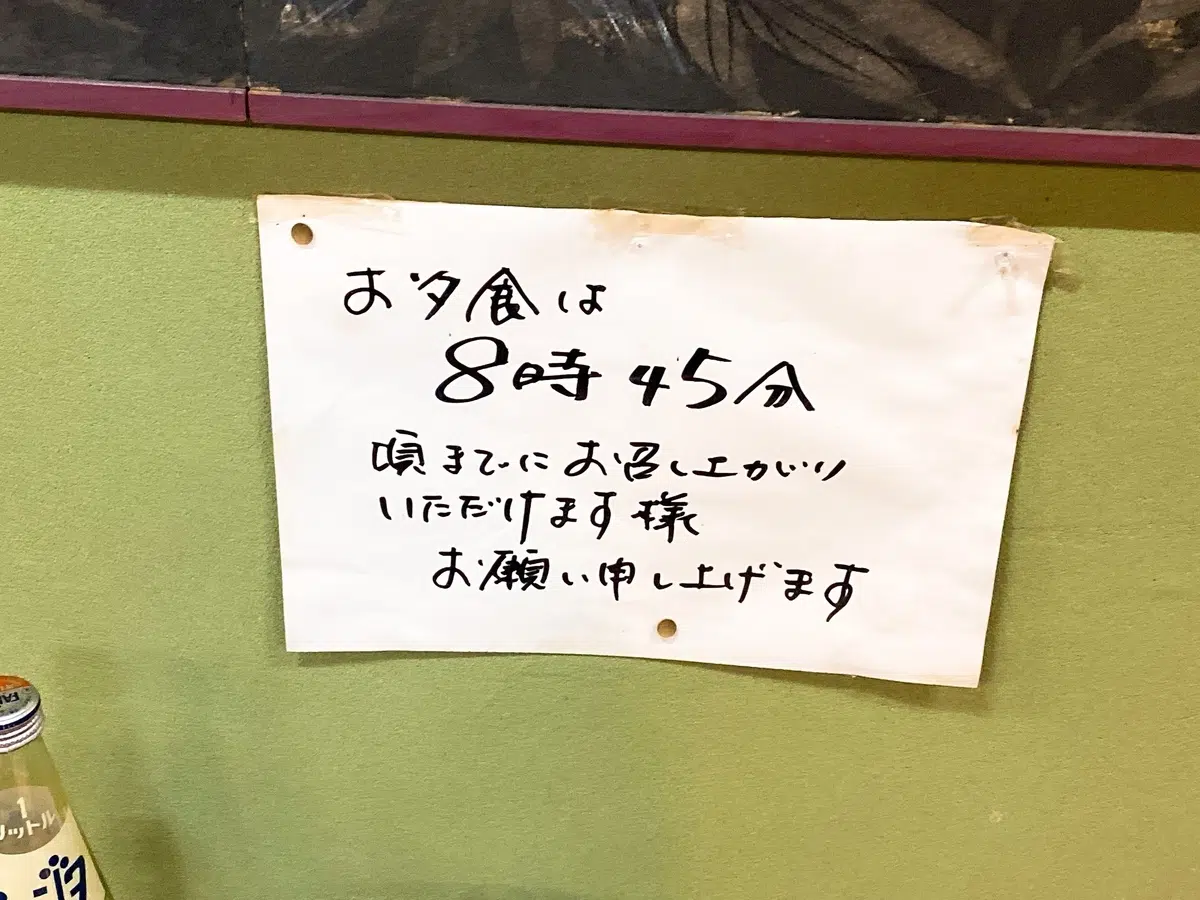 お夕食は
8時45分
頃までにお召し上がり
いただけます様
お願い申し上げます
1
リットル